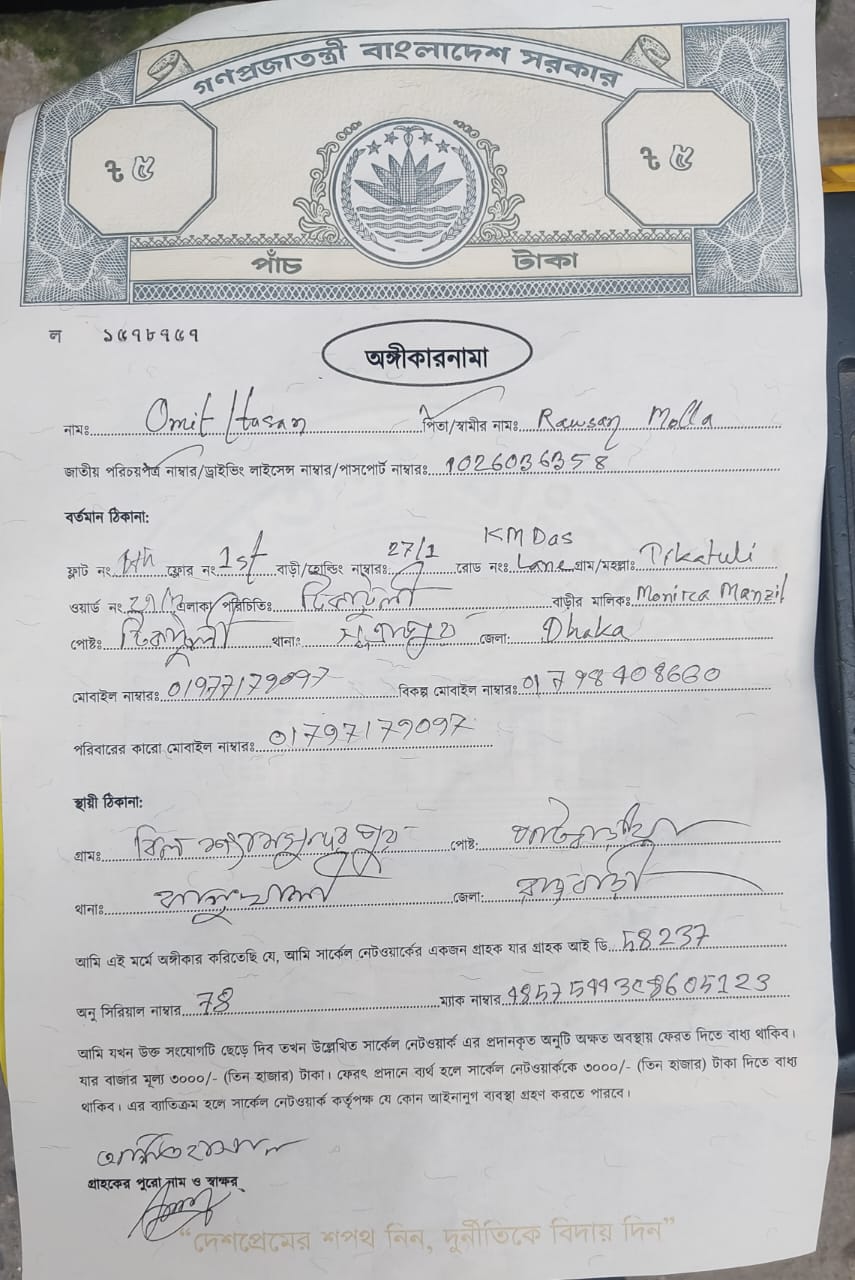 গণপ্রজাতন্ত্রী বাংলাদেশ সরকার
৳ ৫ ৳ ৫
পাঁচ টাকা
ল ১৫৭৮৭৫৭
অঙ্গীকারনামা
নামঃ Omit Hasan পিতা/স্বামীর নামঃ Rawsan Molla
জাতীয় পরিচয়পত্র নাম্বার/ড্রাইভিং লাইসেন্স নাম্বার/পাসপোর্ট নাম্বারঃ 1026036358
বর্তমান ঠিকানা:
ফ্লাট নং ফ্লোর নং 1st বাড়ী/হোল্ডিং নাম্বারঃ 27/1 রোড নংঃ KM Das Lane গ্রাম/মহল্লাঃ Tikatuli
ওয়ার্ড নং এলাকা পরিচিতিঃ টিকাটুলী বাড়ীর মালিকঃ Monirca Manzil
পোষ্টঃ টিকাটুলী থানাঃ জেলা: Dhaka
মোবাইল নাম্বারঃ 01977179097 বিকল্প মোবাইল নাম্বারঃ 01798408630
পরিবারের কারো মোবাইল নাম্বারঃ 01797179097
স্থায়ী ঠিকানা:
গ্রামঃ বিল পোষ্ট:
থানাঃ কালুখালী জেলা: রাজবাড়ী
আমি এই মর্মে অঙ্গীকার করিতেছি যে, আমি সার্কেল নেটওয়ার্কের একজন গ্রাহক যার গ্রাহক আই ডি 58237
অনু সিরিয়াল নাম্বার 78 ম্যাক নাম্বার
আমি যখন উক্ত সংযোগটি ছেড়ে দিব তখন উল্লেখিত সার্কেল নেটওয়ার্ক এর প্রদানকৃত অনুটি অক্ষত অবস্থায় ফেরত দিতে বাধ্য থাকিব।
যার বাজার মূল্য ৩০০০/- (তিন হাজার) টাকা। ফেরৎ প্রদানে ব্যর্থ হলে সার্কেল নেটওয়ার্ককে ৩০০০/- (তিন হাজার) টাকা দিতে বাধ্য
থাকিব। এর ব্যতিক্রম হলে সার্কেল নেটওয়ার্ক কর্তৃপক্ষ যে কোন আইনানুগ ব্যবস্থা গ্রহণ করতে পারবে।
গ্রাহকের পুরো নাম ও স্বাক্ষর
“দেশপ্রেমের শপথ নিন, দুর্নীতিকে বিদায় দিন”